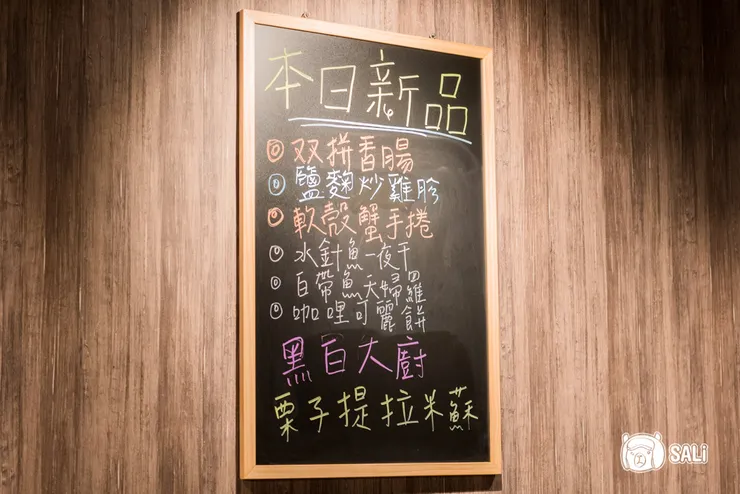 本日新品
◎ 双拼香腸
◎ 鹽麴炒雞胗
◎ 軟殼蟹手捲
◎ 水針魚一夜干
◎ 白帶魚天婦羅
◎ 咖哩可麗餅
黑白大廚
栗子提拉米蘇
SALi